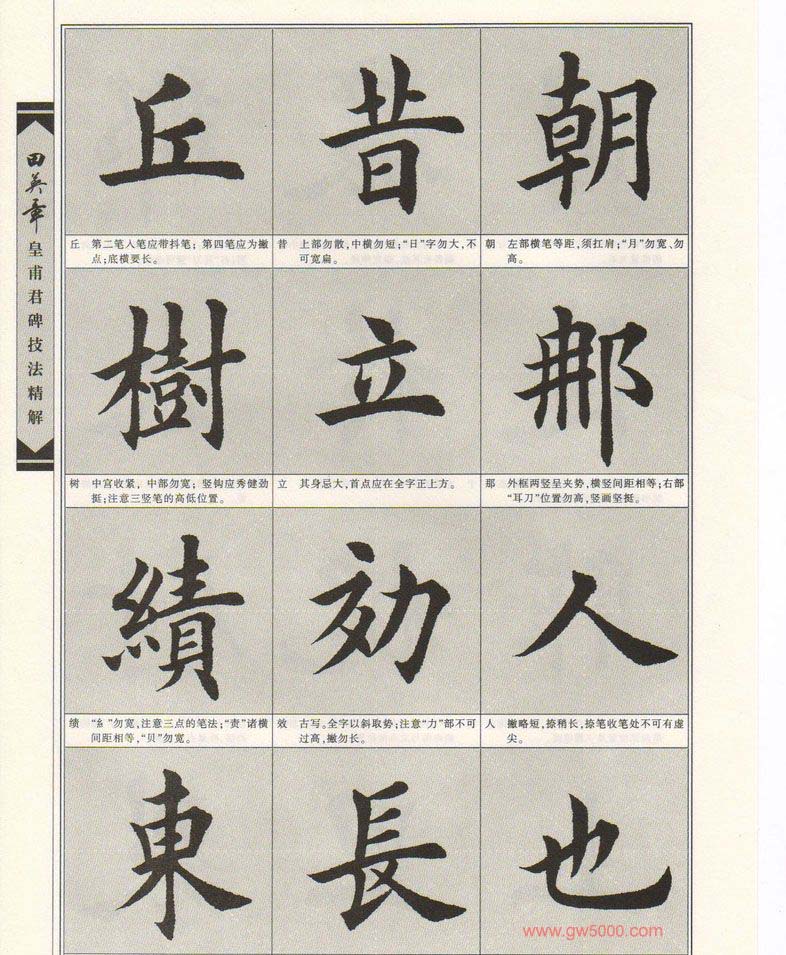 田英章
皇甫君碑技法精解
丘 昔 朝
丘 第二笔入笔应带抖笔；第四笔应为撇
点；底横要长。
昔 上部勿散，中横勿短；“日”字勿大，不
可宽扁。
朝 左部横笔等距，须扛肩；“月”勿宽、勿
高。
樹 立 那
树 中宫收紧，中部勿宽；竖钩应秀健劲
挺；注意三竖笔的高低位置。
立 其身忌大，首点应在全字正上方。
那 外框两竖呈夹势，横竖间距相等；右部
“耳刀”位置勿高，竖画坚挺。
績 効 人
绩 “糹”勿宽，注意三点的笔法；“责”诸横
间距相等，“贝”勿宽。
效 古写。全字以斜取势；注意“力”部不可
过高，撇勿长。
人 撇略短，捺稍长，捺笔收笔处不可有虚
尖。
東 長 也
www.gw5000.com